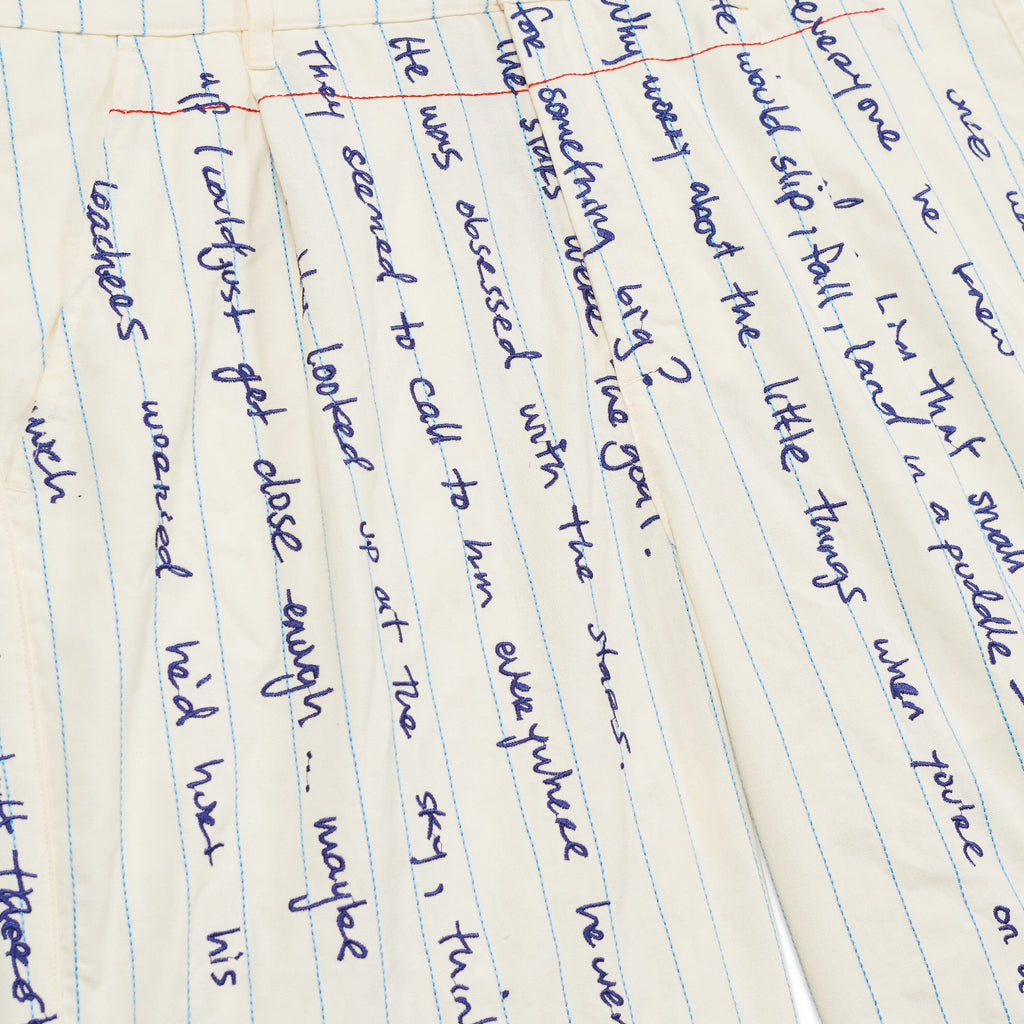 everyone we knew
that small
He would slip, fall, land in a puddle –
Why worry about the little things when you're on
for something big?
the stars were the goal.
He was obsessed with the stars.
They seemed to call to him everywhere he wen
looked up at the sky, thin
up I could just get close enough... maybe
teachers worried he'd hurt his